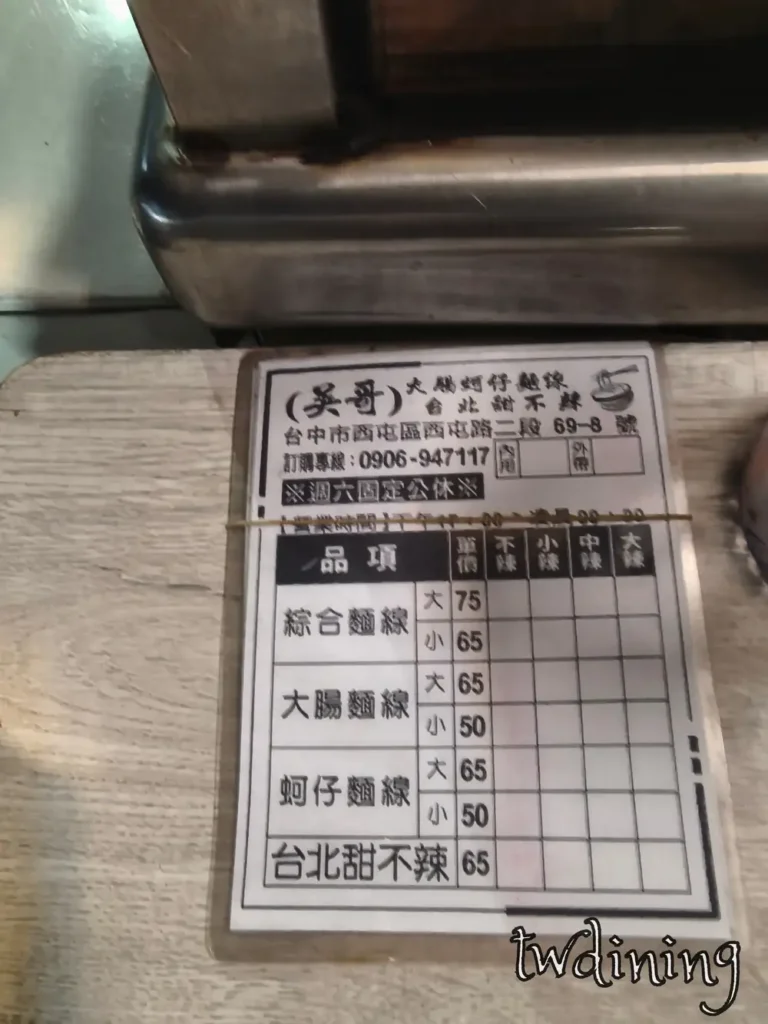 (英哥)大腸蚵仔麵線
台北甜不辣
台中市西屯區西屯路二段 69-8 號
訂購專線:0906-947117 內用 外帶
※週六固定公休※
【營業時間】下午
品項 單價 不辣 小辣 中辣 大辣
綜合麵線 大 75
小 65
大腸麵線 大 65
小 50
蚵仔麵線 大 65
小 50
台北甜不辣 65
twdining